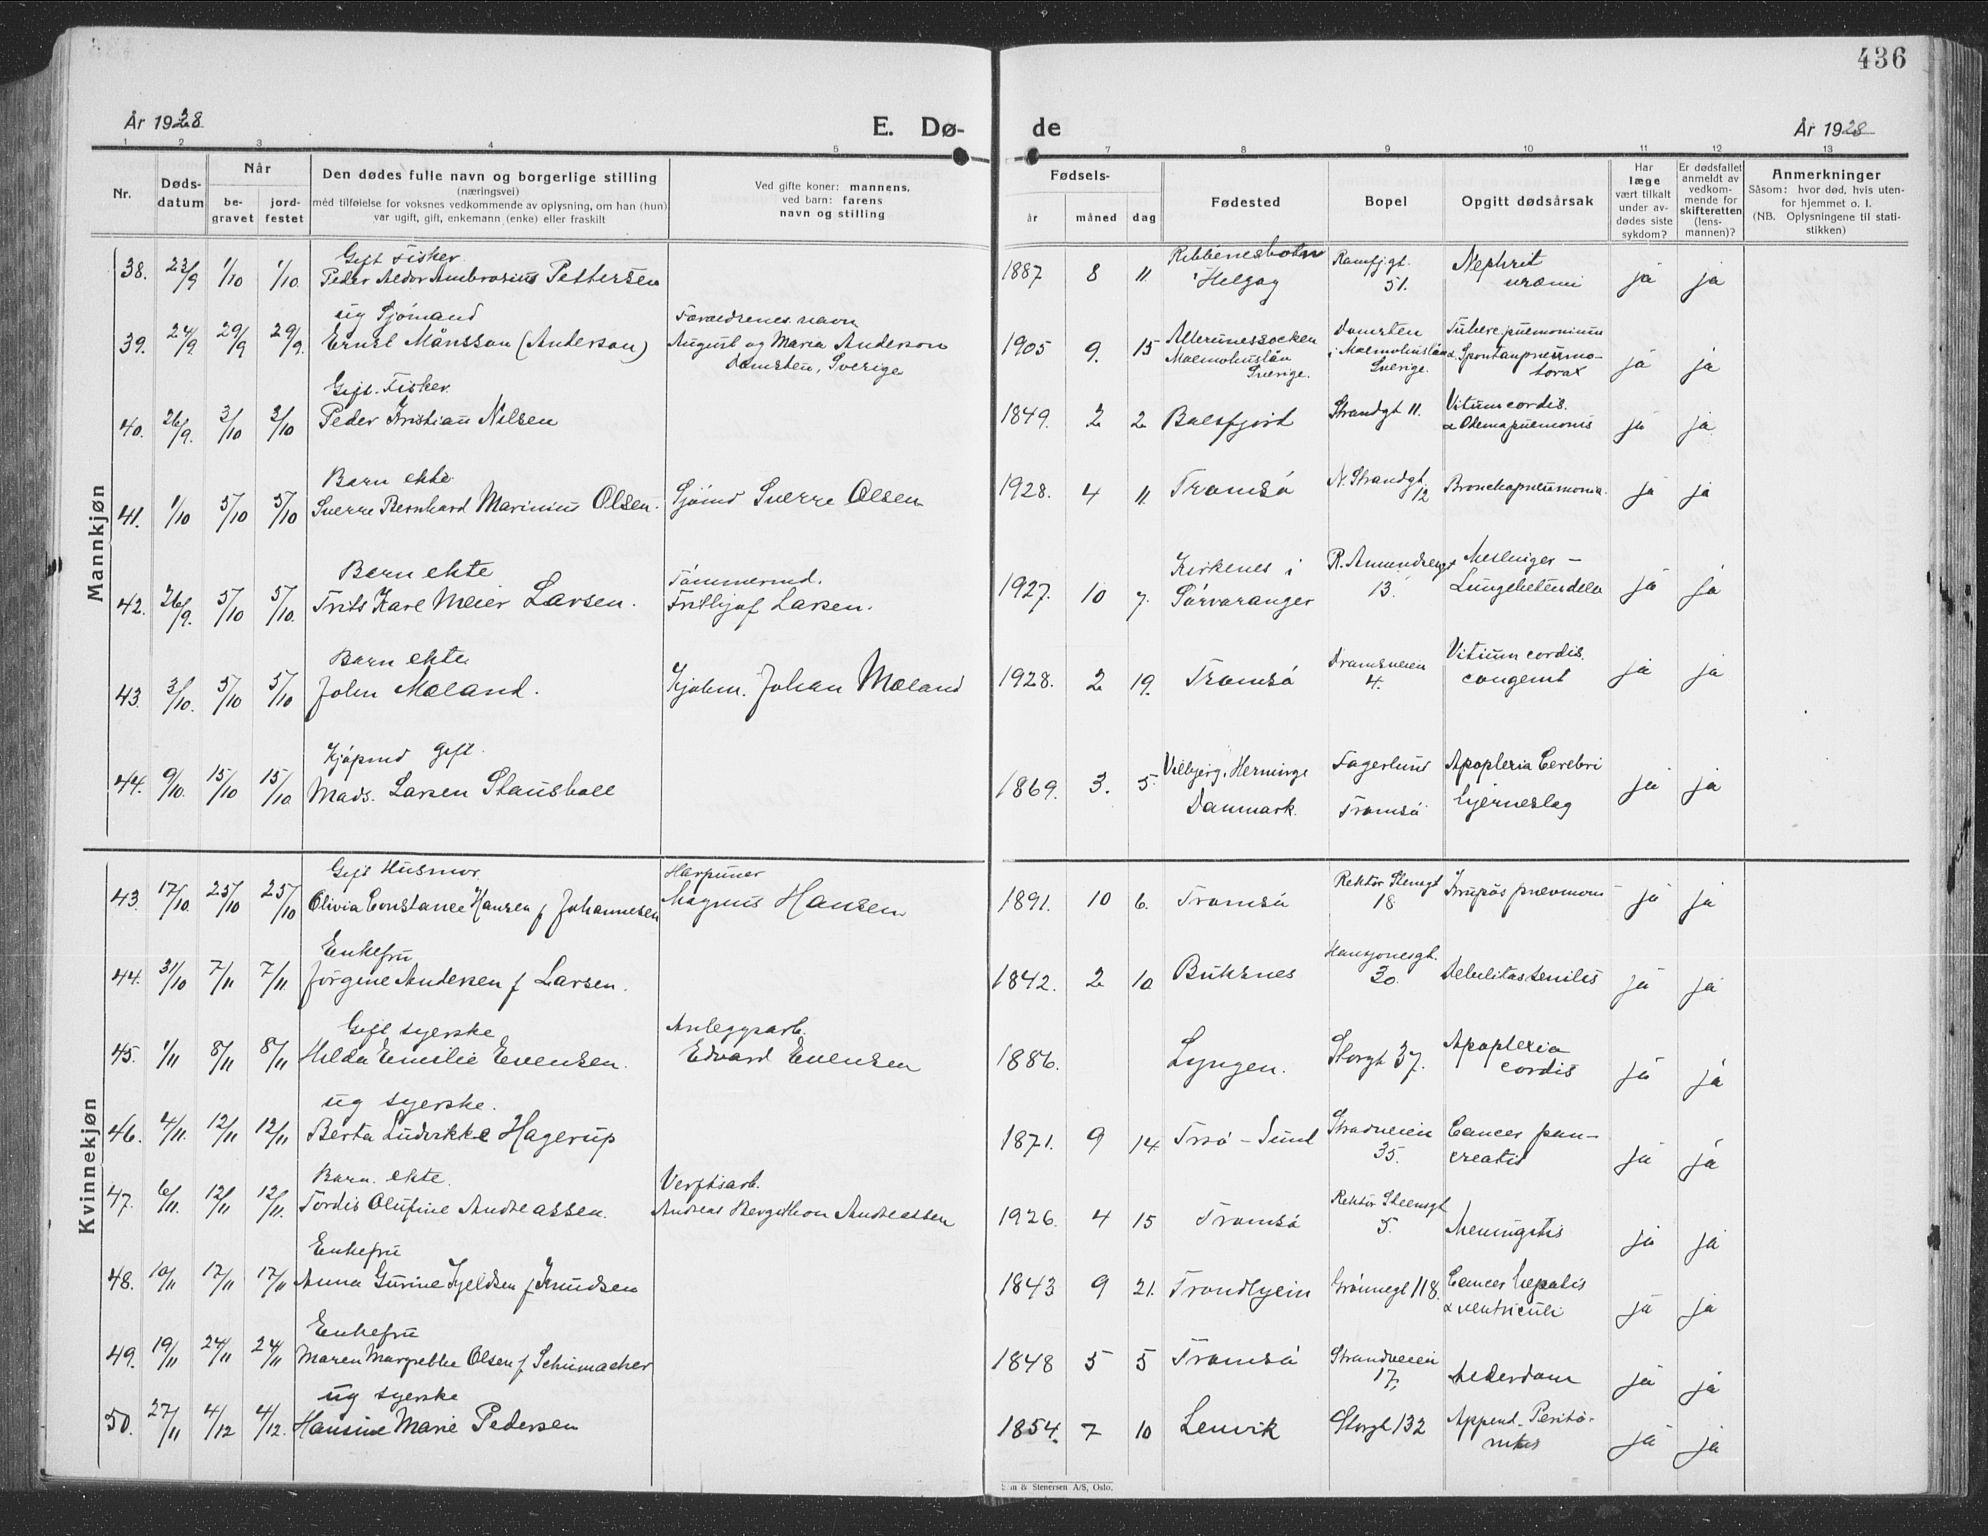 436
År 1928
E. Dø-
de
År 1928
1 2 3 4 5 7 8 9 10 11 12 13
Nr.
Døds-
datum
Når
be-
gravet
jord-
festet
Den dødes fulle navn og borgerlige stilling
(næringsvei)
med tilføielse for voksnes vedkommende av oplysning, om han (hun)
var ugift, gift, enkemann (enke) eller fraskilt
Ved gifte koner: mannens,
ved barn: farens
navn og stilling
Fødsels-
år måned dag
Fødested
Bopel
Opgitt dødsårsak
Har
læge
vært tilkalt
under av-
dødes siste
sykdom?
Er dødsfallet
anmeldt av
vedkom-
mende for
skifteretten
(lens-
mannen)?
Anmerkninger
Såsom: hvor død, hvis uten-
for hjemmet o. l.
(NB. Oplysningene til stati-
stikken)
Mannkjøn
Gift Fisker
38. 23/9 1/10 1/10 Peder Aldor Ambrosius Pettersen 1887 8 11 Helgøy Ramfjgt. 51. Nephrit uræmi ja ja
ug Sjømand
39. 24/9 29/9 29/9 Ernst Månsson (Anderson) Foreldrenes navn
August og Maria Anderson
Domsten, Sverige
1905 9. 15 Allerumssocken
Malmøhuslän
Sverige.
Domsten
i Malmøhuslän
Sverige.
Tuberc. pulmonium
& Spontanpneumo-
torax ja ja
Gift. Fisker.
40. 26/9. 3/10 3/10 Peder Kristian Nilsen 1849. 2 2 Balsfjord Strandgt 11. Vitium cordis.
& Ødema pulmonis ja ja
Barn ekte
41. 1/10 5/10 5/10 Sverre Bernhard Marinius Olsen. Sjømd Sverre Olsen 1928. 4 11 Tromsø N. Strandgt 12 Bronchopneumonia. ja ja
Barn ekte
42. 26/9. 5/10 5/10. Frits Karl Meier Larsen. Tømmermd.
Frithjof Larsen. 1927. 10 7. Kirkenes i
Sørvaranger R. Amundsensgt
13. Meslinger -
Lungebetendelse ja ja
Barn ekte
43. 3/10. 5/10 5/10 John Mæland. Kjøbm. Johan Mæland 1928. 2 19. Tromsø Dramsveien
4. Vitium cordis.
congenit ja ja
Kjøpmd gift.
44. 9/10. 15/10 15/10. Mads. Larsen Stausholl 1869. 3. 5. Vilbjerg, Herninge
Danmark. Fagerlund
Tromsø Apoplexia Cerebri
Hjerneslag ja ja
Kvinnekjøn
Gift Husmor
43. 17/10. 25/10 25/10 Olivia Constance Hansen f Johannesen Harpuner
Magnus Hansen 1891. 10 6. Tromsø Rektor Steensgt
18 Krupøs pnevmoni ja ja
Enkefru
44. 31/10 7/11 7/11 Jørgine Andersen f Larsen. 1842. 2 10 Buksnes Hansjonesgt.
30. Debilitas senilis ja ja
Gift syerske
45. 1/11 8/11 8/11 Hilda Emilie Evensen. Anleggsarb.
Edvard Evensen 1886. Lyngen. Storgt 37. Apoplexia
cordis ja ja
ug syerske.
46. 4/11. 12/11 12/11 Berta Ludvikke Hagerup 1871. 9 14 Trsø-Sund Strandveien
35. Cancer pan-
creatis ja ja
Barn. ekte.
47. 6/11. 12/11 12/11. Tordis Olufine Andreassen. Verftsarb.
Andreas Bergithon Andreassen 1926. 4 15 Tromsø Rektor Steensgt
5. Meningitis ja ja
Enkefru
48. 10/11 17/11 17/11 Anna Gurine Kjeldsen f Knudsen 1843 9 21. Trondhjem Grønnegt 118. Cancer hepatis
& ventriculi ja ja
Enkefru
49. 19/11 24/11 24/11 Maren Margrethe Olsen f Schumacher 1848 5 5 Tromsø Strandveien
17, Alderdom ja ja
ug syerske
50. 27/11 4/12 4/12. Hansine Marie Pedersen 1854. 7 10 Lenvik Storgt 132 Append. Perito-
nitis ja ja
& Stenersen A/S, Oslo.